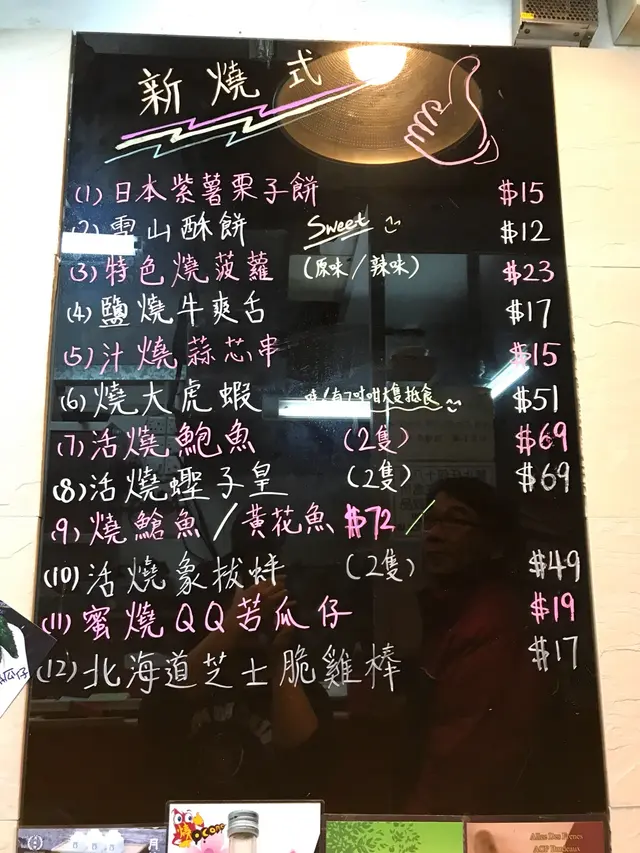 新燒式
(1) 日本紫薯栗子餅 $15
(2) 雪山酥餅 Sweet $12
(3) 特色燒菠蘿 (原味/辣味) $23
(4) 鹽燒牛爽舌 $17
(5) 汁燒蒜芯串 $15
(6) 燒大虎蝦 大隻抵食 $51
(7) 活燒鮑魚 (2隻) $69
(8) 活燒蟶子皇 (2隻) $69
(9) 燒鯧魚/黃花魚 $72/
(10) 活燒象拔蚌 (2隻) $49
(11) 蜜燒QQ苦瓜仔 $19
(12) 北海道芝士脆雞棒 $17
瓜仔
月
Allan Des Perses
ACP Bordeaux